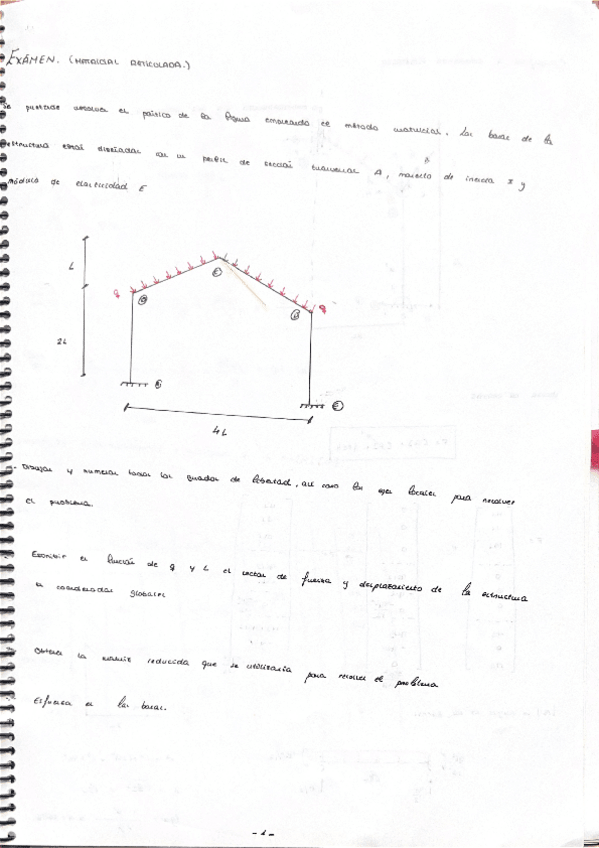 EXÁMEN. (MATRICIAL ARTICULADA.)
Se pretende resolver el pórtico de la figura empleando el método matricial. Las barras de la
estructura están diseñadas con un perfil de sección transversal A, momento de inercia I y
módulo de elasticidad E
L
q
q
2L
4L
- Dibujar y numerar todos los grados de libertad, así como los ejes locales para resolver
el problema.
Escribir en función de q y L el vector de fuerza y desplazamiento de la estructura
en coordenadas globales
Obtener la matriz reducida que se utilizaría para resolver el problema
Esfuerzo en las barras.
- 1 -